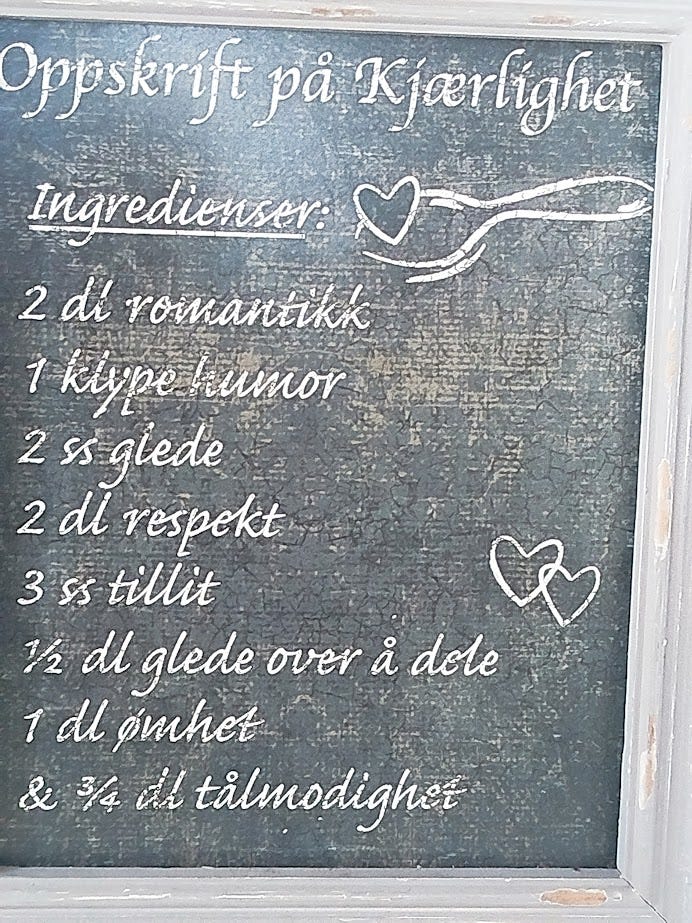 Oppskrift på Kjærlighet
Ingredienser:
2 dl romantikk
1 klype humor
2 ss glede
2 dl respekt
3 ss tillit
½ dl glede over å dele
1 dl ømhet
& ¾ dl tålmodighet